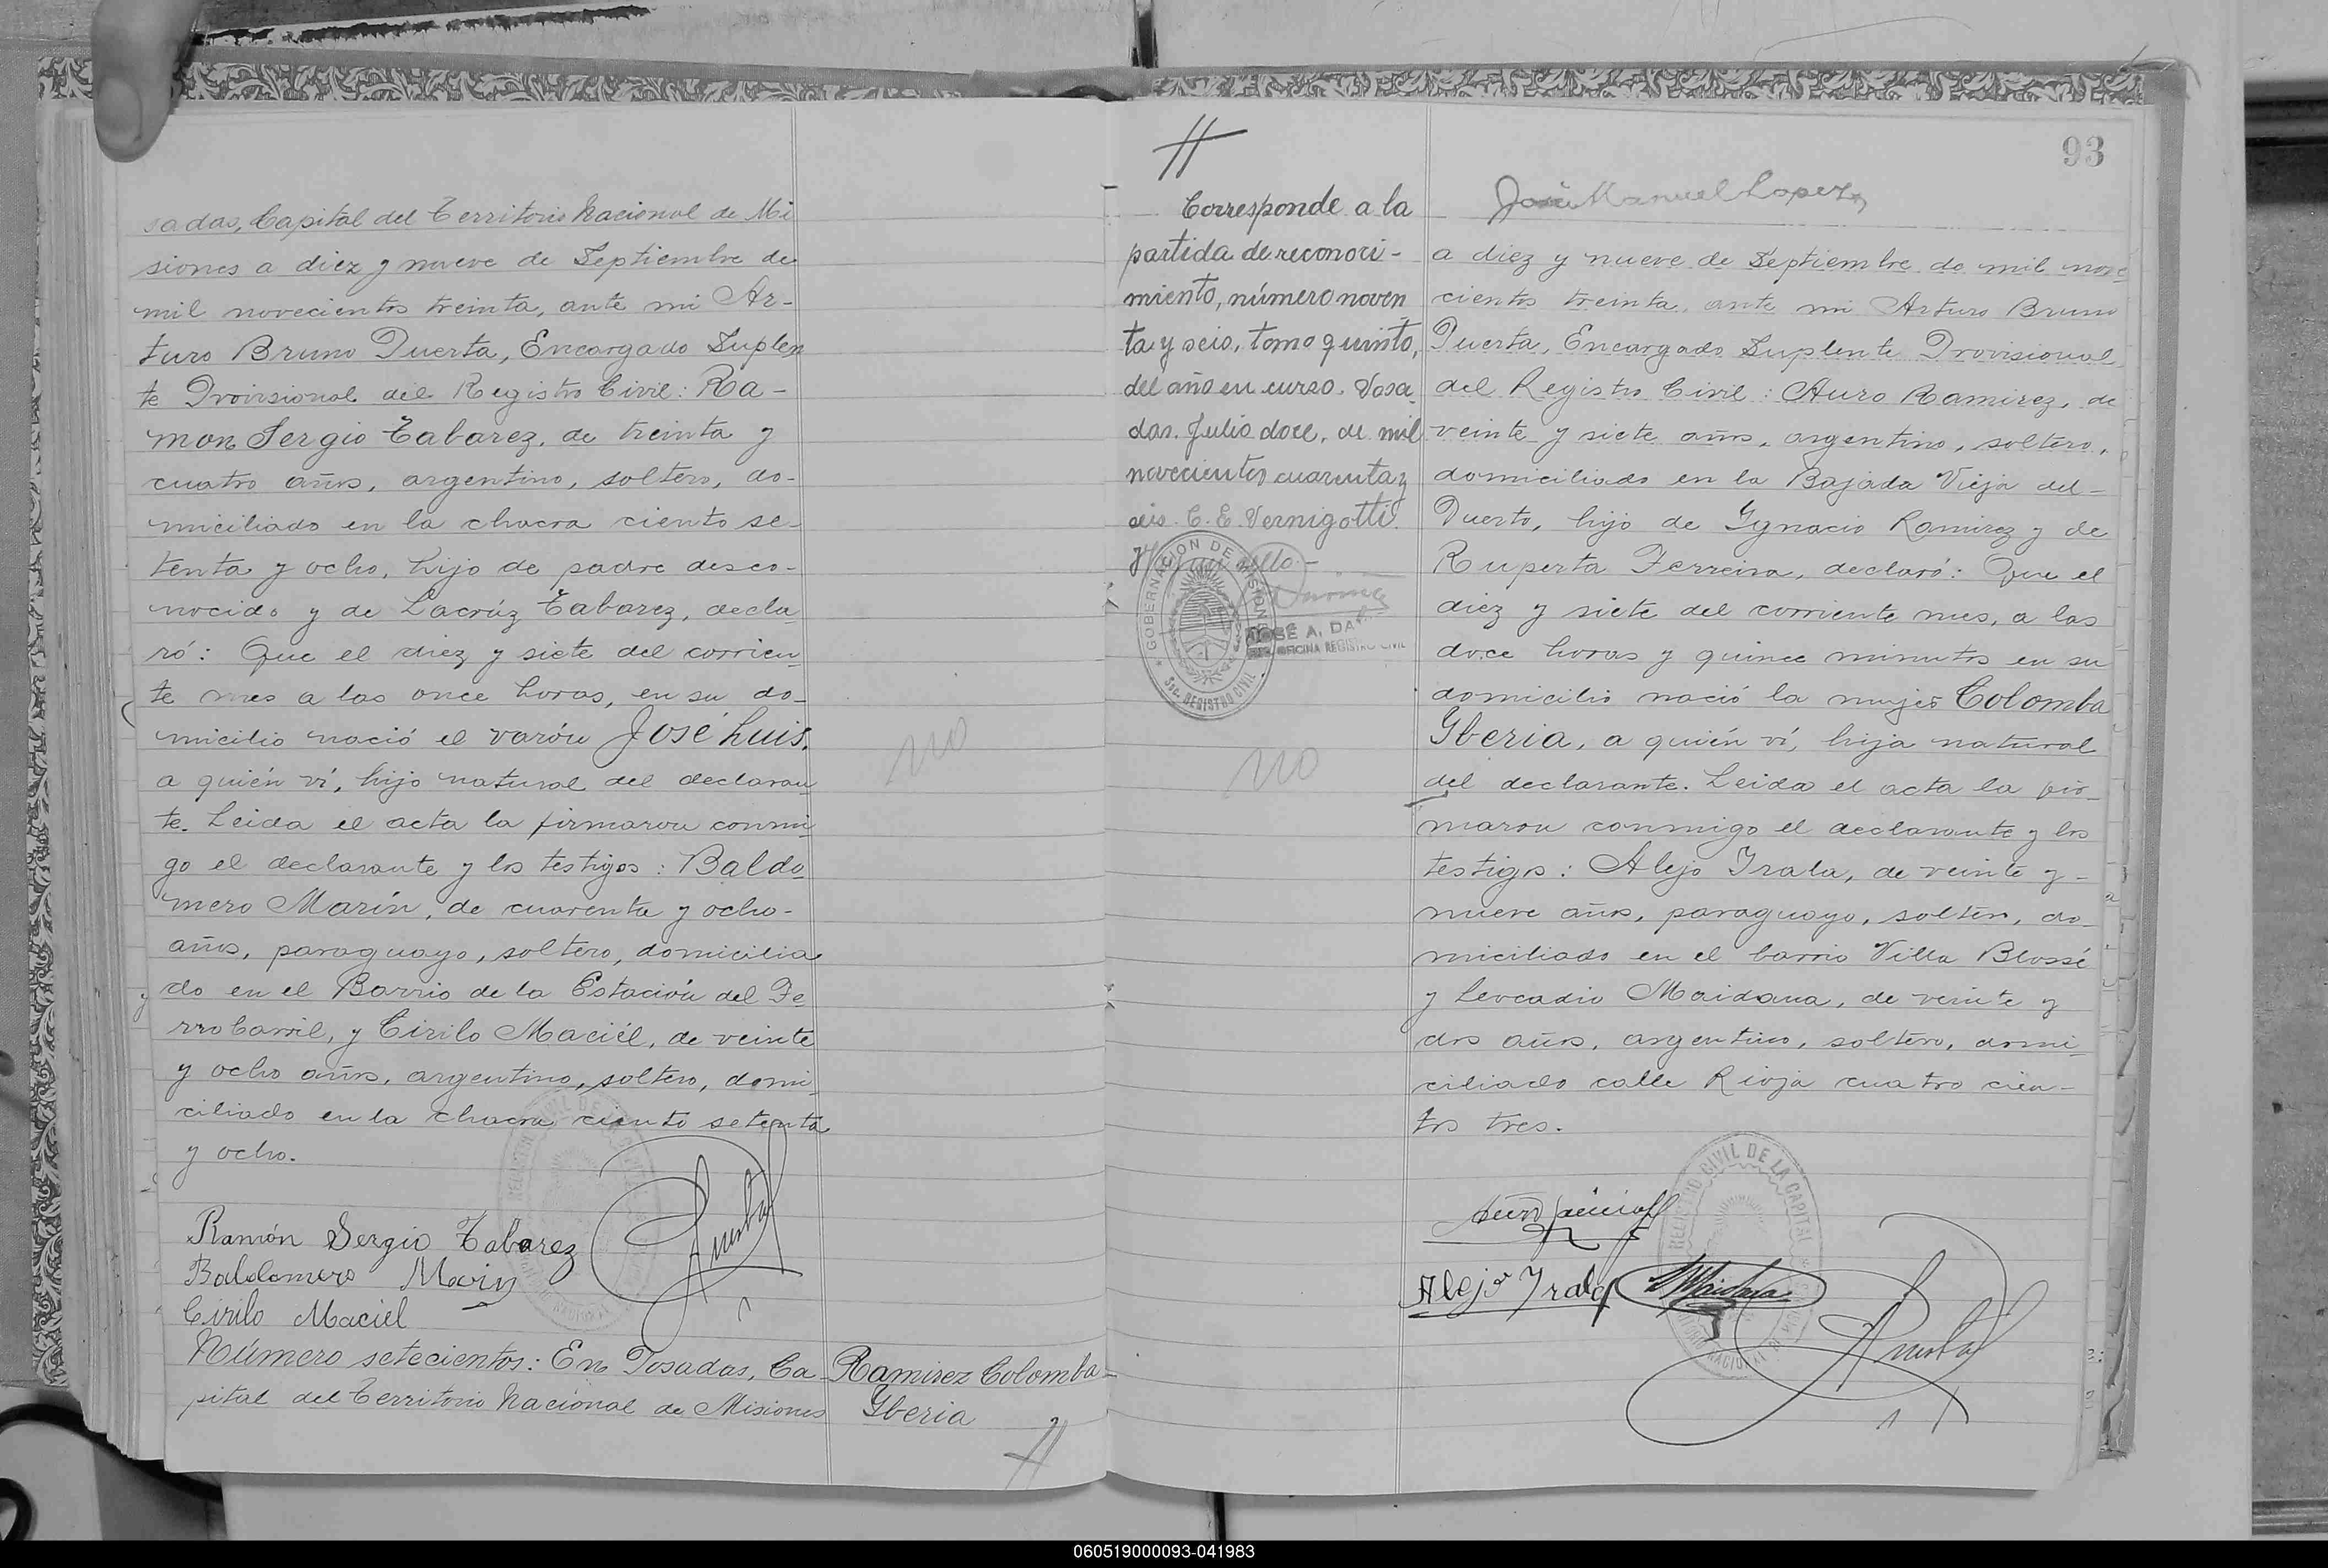 sadas, Capital del Territorio Nacional de Mi
siones a diez y nueve de Septiembre de
mil novecientos treinta, ante mi Ar-
turo Bruno Puerta, Encargado Suplen
te Provisional del Registro Civil: Ra-
mon Sergio Tabarez, de treinta y
cuatro años, argentino, soltero, do-
miciliado en la chacra ciento se-
tenta y ocho, hijo de padre desco-
nocido y de Lacrúz Tabarez, decla
ró: Que el diez y siete del corrien
te mes a las once horas, en su do-
micilio nació el varón José Luis,
a quién ví, hijo natural del declaran
te. Leida el acta la firmaron conmi
go el declarante y los testigos: Baldo
mero Marín, de cuarenta y ocho-
años, paraguayo, soltero, domicilia
do en el Barrio de la Estación del Fe
rro Carril, y Cirilo Maciél, de veinte
y ocho años, argentino, soltero, domi
ciliado en la chacra ciento setenta
y ocho.
Ramón Sergio Tabarez
Baldomero Marin
Cirilo Maciel
Puerta
Número setecientos: En Posadas, Ca-
pital del Territorio Nacional de Misiones
no
Ramirez Colomba-
Yberia
Corresponde a la
partida de reconoci-
miento, número noven
ta y seis, tomo quinto,
del año en curso. Posa
das. Julio doce, de mil
novecientos cuarenta y
seis. C. E. Vernigotti.
sello-
GOBERNACION DE MISIONES
Sec. REGISTRO CIVIL
JOSÉ A. DA
OFICINA REGISTRO CIVIL
no
93
José Manuel Lopez
a diez y nueve de Septiembre de mil nove
cientos treinta, ante mi Arturo Bruno
Puerta, Encargado Suplente Provisional
del Registro Civil: Auro Ramirez, de
veinte y siete años, argentino, soltero,
domiciliado en la Bajada Vieja del-
Puerto, hijo de Ygnacio Ramirez y de
Ruperta Ferreira, declaró: Que el
diez y siete del corriente mes, a las
doce horas y quince minutos en su
domicilio nació la mujer Colomba
Yberia, a quién ví, hija natural
del declarante. Leida el acta la fir-
maron conmigo el declarante y los
testigos: Alejo Irala, de veinte y-
nueve años, paraguayo, soltero, do-
miciliado en el barrio Villa Blossé
y Leocadio Maidana, de veinte y
dos años, argentino, soltero, domi-
ciliado calle Rioja cuatro cien-
tos tres.
REGISTRO CIVIL DE LA CAPITAL
Alejo Yrala
Maidana
Puerta
060519000093-041983